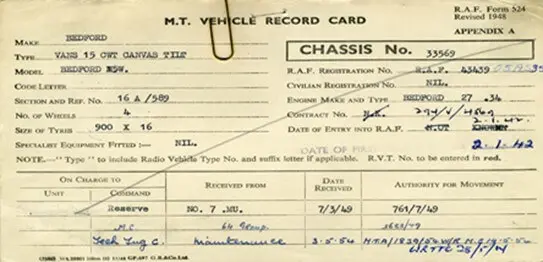 R.A.F. Form 524
Revised 1948
APPENDIX A
M.T. VEHICLE RECORD CARD
MAKE BEDFORD
TYPE VANS 15 CWT CANVAS TILT
MODEL BEDFORD
CODE LETTER
SECTION AND REF. No. 16 A /589
No. OF WHEELS 4
SIZE OF TYRES 900 X 16
SPECIALIST EQUIPMENT FITTED :— NIL.
CHASSIS No. 33569
R.A.F. REGISTRATION No. R.A.F. 43439
CIVILIAN REGISTRATION No. NIL.
ENGINE MAKE AND TYPE BEDFORD 27 .34
CONTRACT No.
DATE OF ENTRY INTO R.A.F. NOT KNOWN 2.1.42
2.1.42
NOTE.—"Type" to include Radio Vehicle Type No. and suffix letter if applicable. R.V.T. No. to be entered in red.
ON CHARGE TO
UNIT COMMAND RECEIVED FROM DATE RECEIVED AUTHORITY FOR MOVEMENT
Reserve NO. 7 .MU. 7/3/49 761/7/49
M.C 64 Group.
Tech Trg C. Maintenance 3.5.54